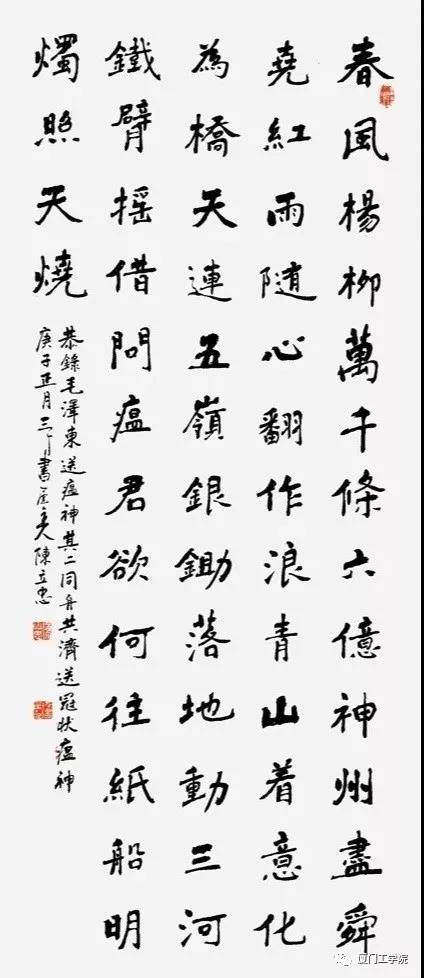 春風楊柳萬千條六億神州盡舜
堯紅雨随心翻作浪青山着意化
為橋天連五嶺銀鋤落地動三河
鐵臂搖借問瘟君欲何往紙船明
燭照天燒
恭錄毛澤東送瘟神其二同舟共濟送冠状瘟神
庚子正月三日書陳立忠
厦门工学院